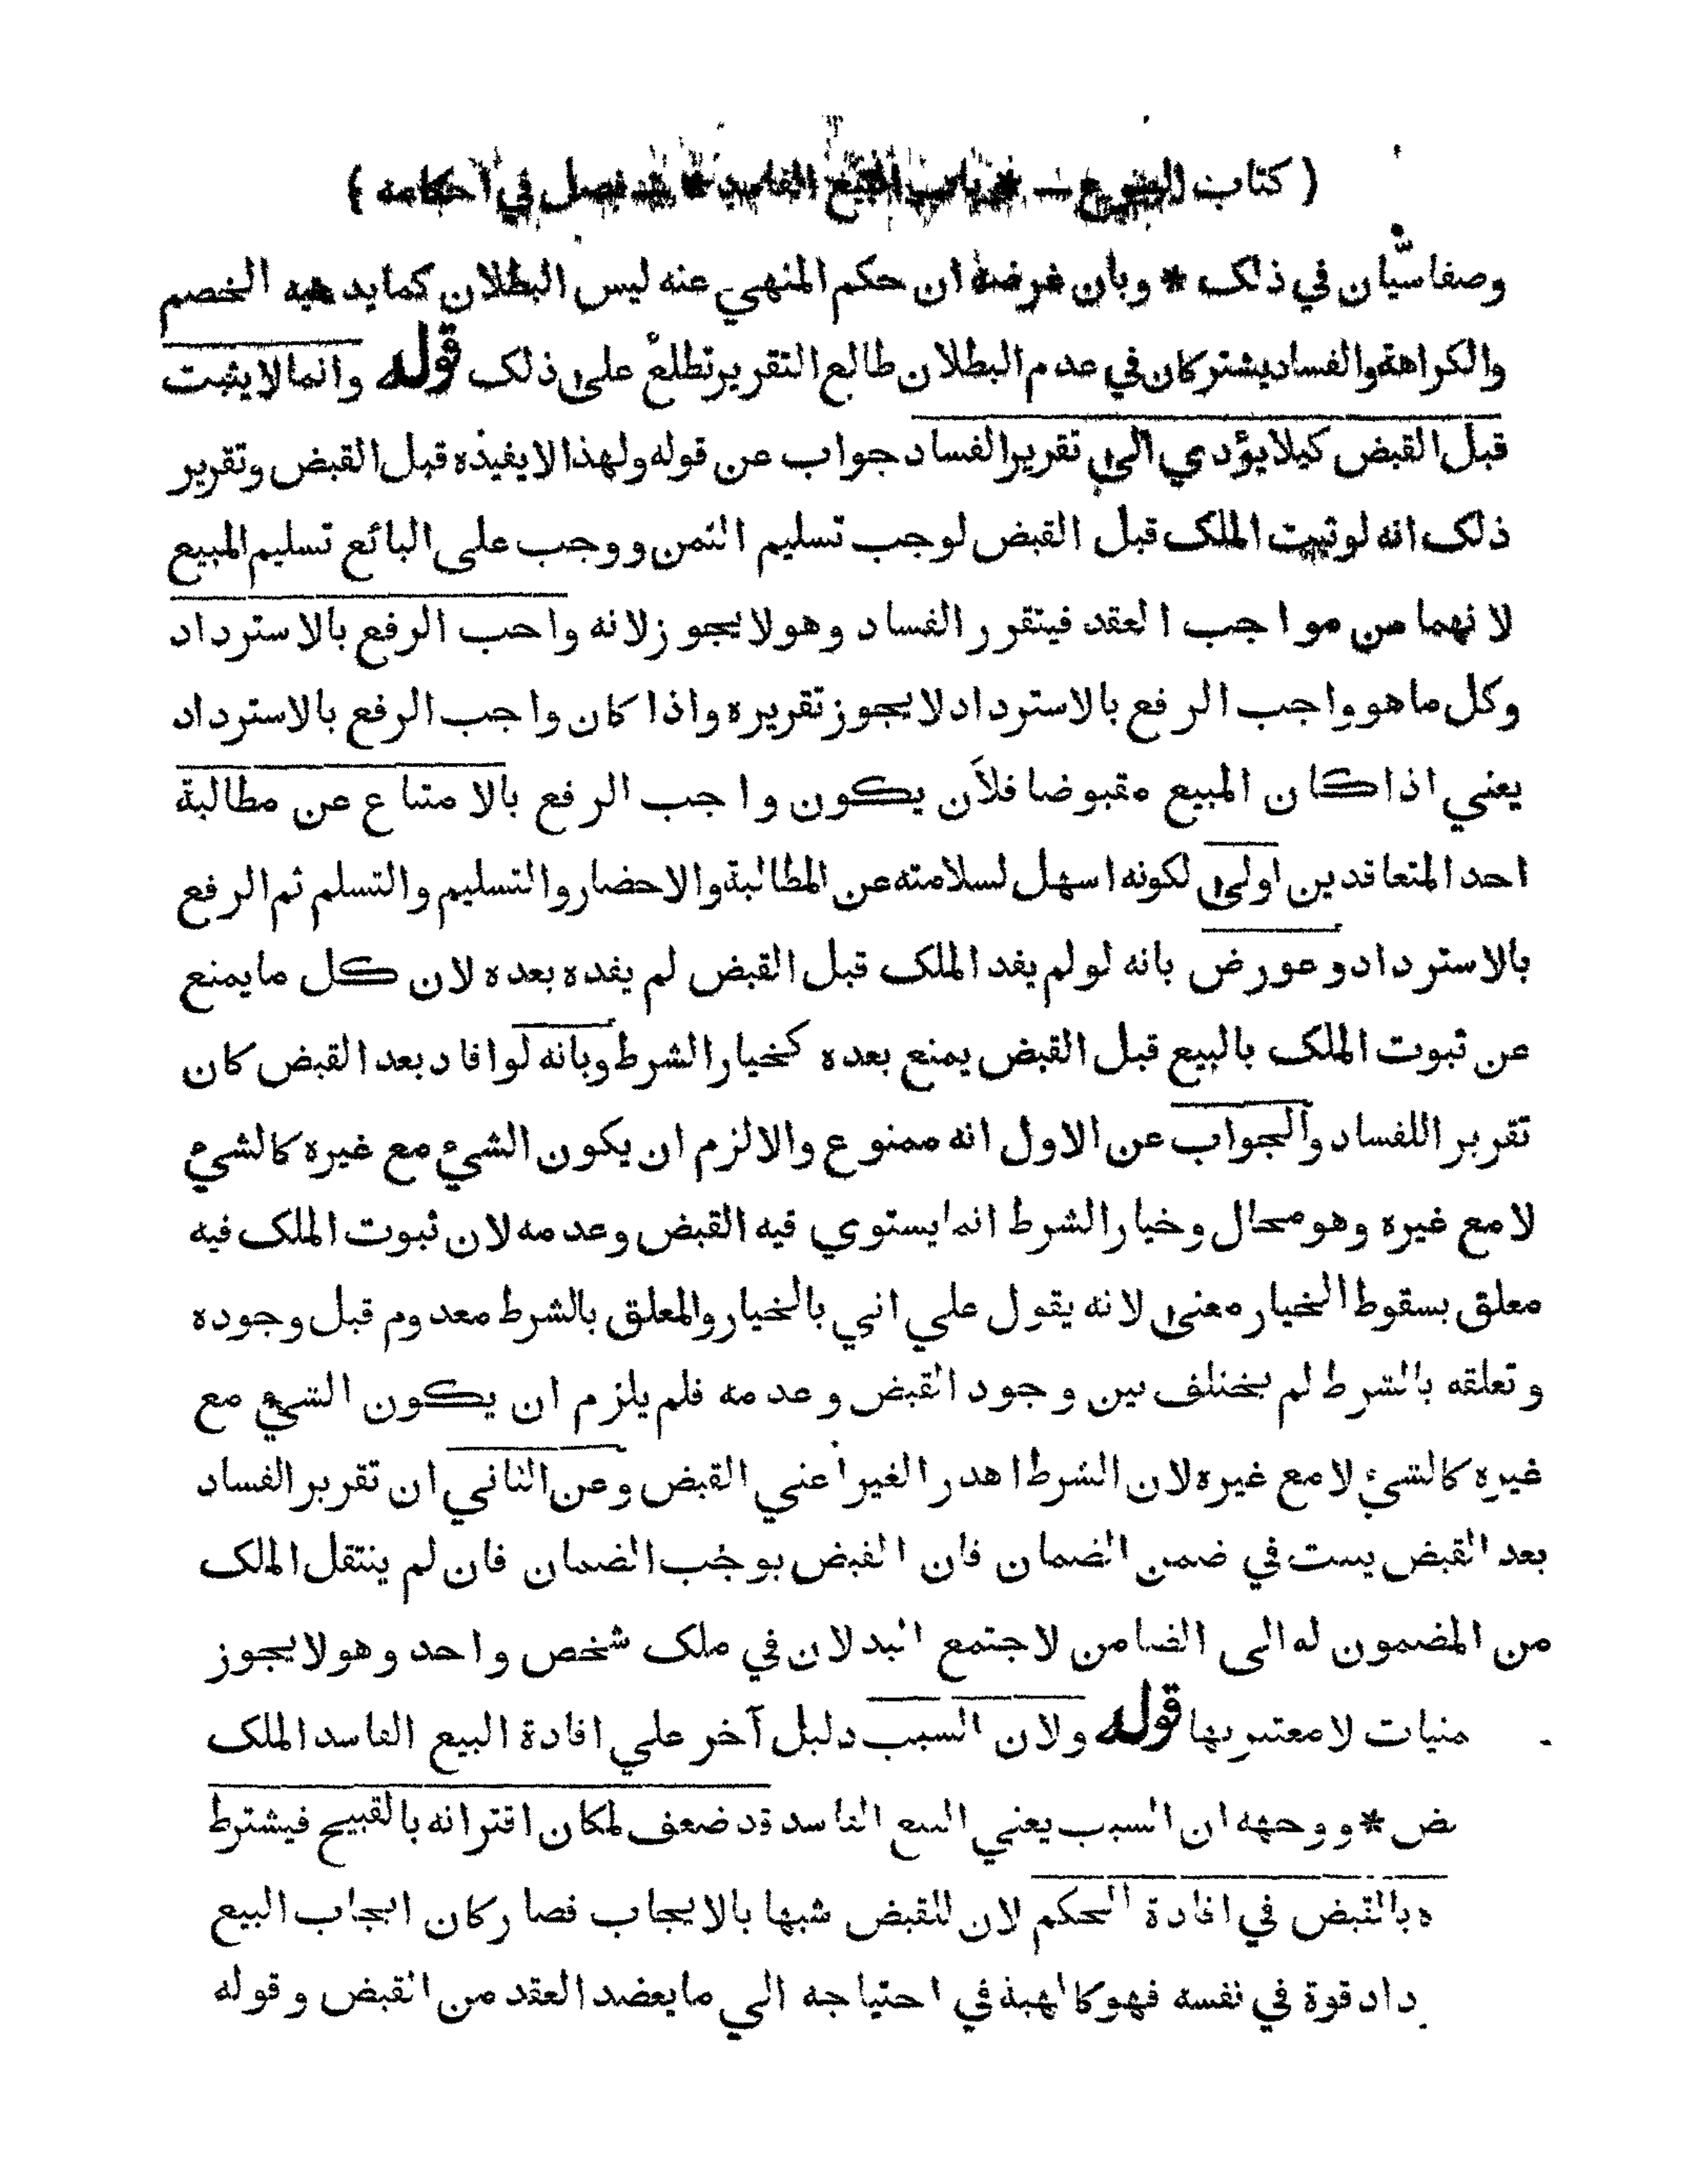 ( كتاب البيوع — * باب البيع الفاسد * فصل في احكامه )
وصفا سيّان في ذلك * وبان غرضه ان حكم المنهي عنه ليس البطلان كما يدعيه الخصم
والكراهة والفساد يشتركان في عدم البطلان طالع التقرير تطلع على ذلك قوله وانما لا يثبت
قبل القبض كيلا يؤدي الى تقرير الفساد جواب عن قوله ولهذا لا يفيده قبل القبض وتقرير
ذلك انه لو ثبت الملك قبل القبض لوجب تسليم الثمن ووجب على البائع تسليم المبيع
لانهما من مواجب العقد فيتقرر الفساد وهو لا يجوز لانه واجب الرفع بالاسترداد
وكل ما هو واجب الرفع بالاسترداد لا يجوز تقريره واذا كان واجب الرفع بالاسترداد
يعني اذا كان المبيع مقبوضا فلَأن يكون واجب الرفع بالامتناع عن مطالبة
احد المتعاقدين اولى لكونه اسهل لسلامته عن المطالبة والاحضار والتسليم والتسلم ثم الرفع
بالاسترداد وعورض بانه لو لم يفد الملك قبل القبض لم يفده بعده لان كل ما يمنع
عن ثبوت الملك بالبيع قبل القبض يمنع بعده كخيار الشرط وبانه لو افاد بعد القبض كان
تقريرا للفساد والجواب عن الاول انه ممنوع والا لزم ان يكون الشيء مع غيره كالشيء
لا مع غيره وهو محال وخيار الشرط انما يستوي فيه القبض وعدمه لان ثبوت الملك فيه
معلق بسقوط الخيار معنى لانه يقول علي اني بالخيار والمعلق بالشرط معدوم قبل وجوده
وتعلقه بالشرط لم يختلف بين وجود القبض وعدمه فلم يلزم ان يكون الشيء مع
غيره كالشيء لا مع غيره لان الشرط اهدر الغير اعني القبض وعن الثاني ان تقرير الفساد
بعد القبض يثبت في ضمن الضمان فان القبض يوجب الضمان فان لم ينتقل الملك
من المضمون له الى الضامن لاجتمع البدلان في ملك شخص واحد وهو لا يجوز
منيات لا معتبر بها قوله ولان السبب دليل آخر علي افادة البيع الفاسد الملك
ض * ووجهه ان السبب يعني البيع الفاسد قد ضعف لمكان اقترانه بالقبيح فيشترط
ه بالقبض في افادة الحكم لان للقبض شبها بالايجاب فصار كان ايجاب البيع
داد قوة في نفسه فهو كالهبة في احتياجه الي ما يعضد العقد من القبض وقوله